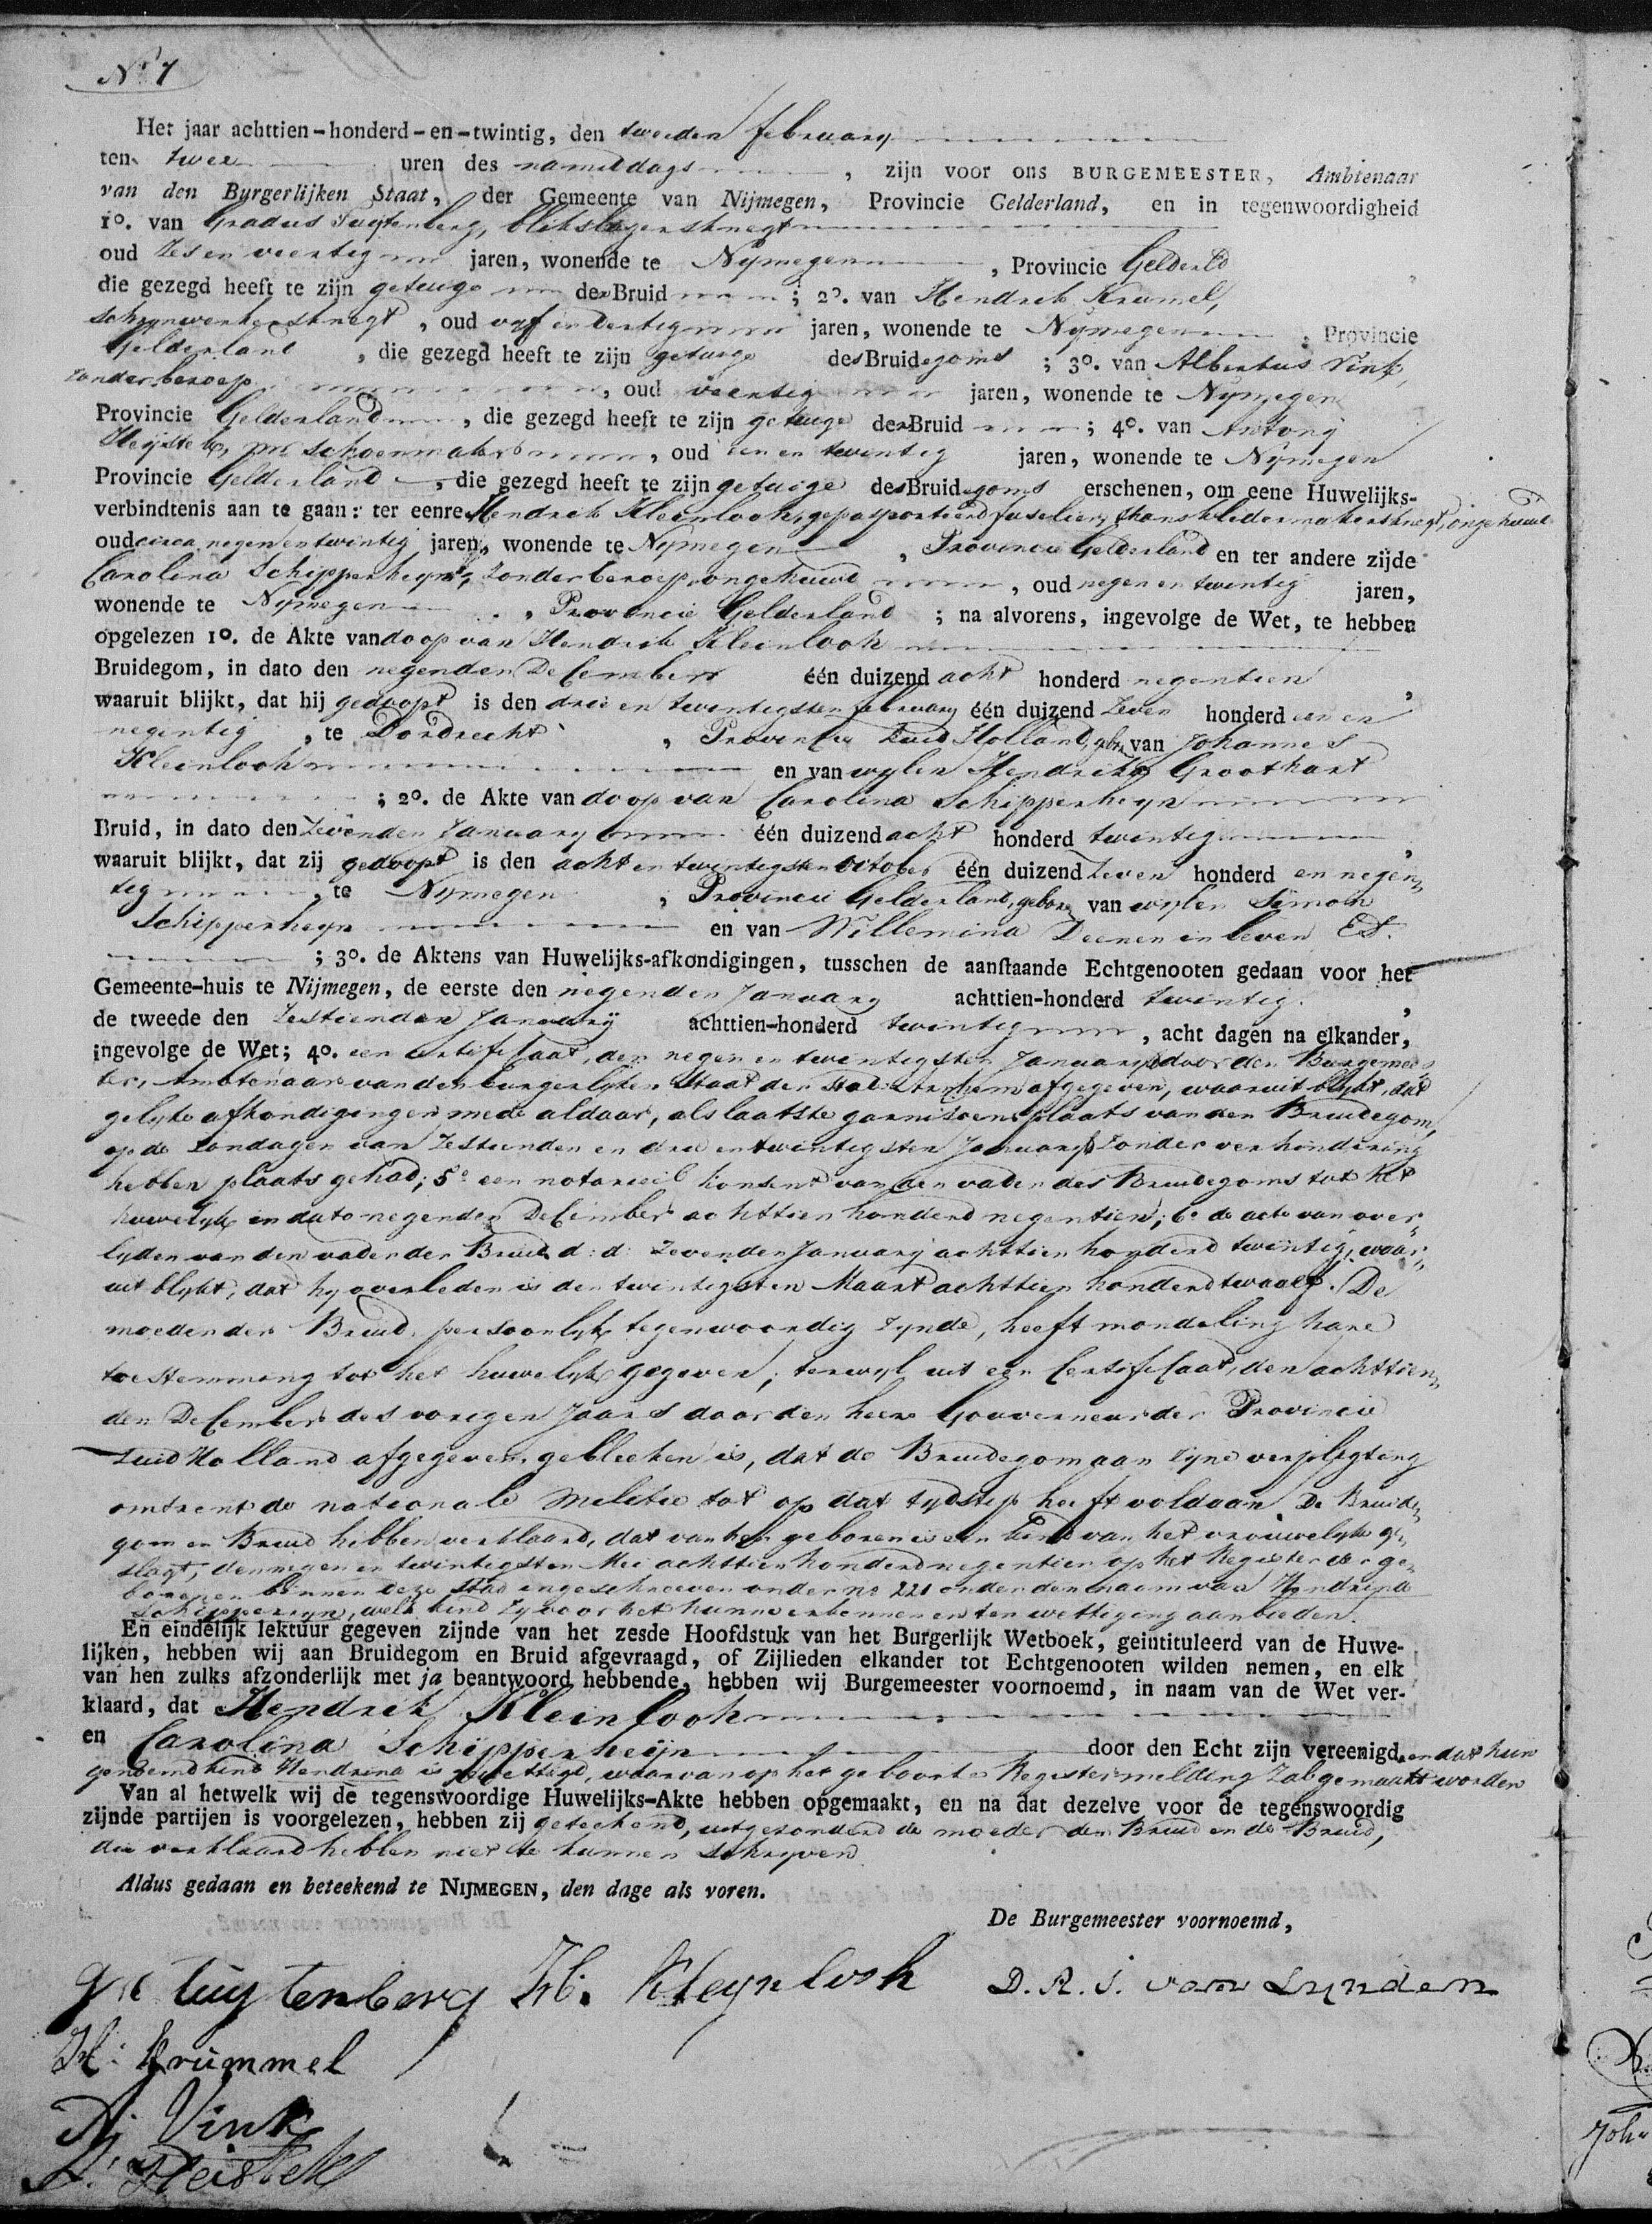 N.° 7
Het jaar achttien-honderd-en-twintig, den tweeden february
ten twee uren des namiddags, zijn voor ons BURGEMEESTER, Ambtenaar
van den Burgerlijken Staat, der Gemeente van Nijmegen, Provincie Gelderland, en in tegenwoordigheid
1o. van Gradus Tuytenberg, blikslagersknegt
oud zes en veertig jaren, wonende te Nymegen, Provincie Gelderld
die gezegd heeft te zijn getuige der Bruid; 2o. van Hendrik Krumel,
schrynwerkersknegt, oud vyf en dertig jaren, wonende te Nymegen, Provincie
Gelderland, die gezegd heeft te zijn getuige des Bruidegoms; 3o. van Albertus Vink,
zonder beroep, oud veertig jaren, wonende te Nymegen
Provincie Gelderland, die gezegd heeft te zijn getuige der Bruid; 4o. van Antony
Heijstek, schoenmaker, oud een en twintig jaren, wonende te Nymegen
Provincie Gelderland, die gezegd heeft te zijn getuige des Bruidegoms erschenen, om eene Huwelijks-
verbindtenis aan te gaan: ter eenre Hendrik Kleinlook, gepasporteerd fuselier, thans kledermakersknegt, ongehuwd
oud circa negen en twintig jaren, wonende te Nymegen, Provincie Gelderland en ter andere zijde
Carolina Schipperheyn, zonder beroep, ongehuwd, oud negen en twintig jaren,
wonende te Nymegen, Provincie Gelderland; na alvorens, ingevolge de Wet, te hebben
opgelezen 1o. de Akte van doop van Hendrik Kleinlook
Bruidegom, in dato den negenden December één duizend acht honderd negentien,
waaruit blijkt, dat hij gedoopt is den drie en twentigsten february één duizend zeven honderd een en
negentig, te Dordrecht, Provincie Zuid Holland, van Johannes
Kleinlook en van wylen Hendrika Groothart
; 2o. de Akte van doop van Carolina Schipperheyn
Bruid, in dato den zevenden January één duizend acht honderd twentig,
waaruit blijkt, dat zij gedoopt is den acht en twentigsten october één duizend zeven honderd en negen
tig, te Nymegen, Provincie Gelderland, gebore van wylen Simon
Schipperheyn en van Willemina Deenen in leven Et.
; 3o. de Aktens van Huwelijks-afkondigingen, tusschen de aanstaande Echtgenooten gedaan voor het
Gemeente-huis te Nijmegen, de eerste den negenden January achttien-honderd twentig,
de tweede den zestienden January achttien-honderd twentig, acht dagen na elkander,
ingevolge de Wet; 4o. een certificaat, den negen en twentigsten January door den Burgemees
ter, Ambtenaar van den burgerlyken Staat der Stad Arnhem afgegeven, waaruit blykt, dat
gelyke afkondigingen mede aldaar, als laatste garnisoensplaats van den Bruidegom,
op de zondagen van zestienden en drie en twintigsten January zonder verhindering
hebben plaats gehad; 5o een notarieel konsent van den vader des Bruidegoms tot het
huwelyk in dato negenden December achttien honderd negentien; 6o de acte van over
lyden van den vader der Bruid d: d: zevenden January achttien honderd twintig, waar
uit blykt, dat hy overleden is den twintigsten Maart achttien honderd twaalf. De
moeder der Bruid, persoonlyk tegenwoordig zynde, heeft mondeling hare
toestemming tot het huwelyk gegeven; terwyl uit een Certificaat, den achttien
den December des vorigen Jaars door den heere Gouverneur der Provincie
Zuid Holland afgegeven, gebleeken is, dat de Bruidegom aan zyne verpligting
omtrent de nationale Militie tot op dat tydstip heeft voldaan. De Bruide
gom en Bruid hebben verklaard, dat van hen geboren is een kind van het vrouwelyk ge
slagt, den negen en twintigsten Mei achttien honderd negentien op het Register der ge
borenen binnen deze Stad ingeschreven onder no 221 onder den naam van Hendrina
Schipperryn, welk kind zy voor het hunne erkennen en ter wettiging aanbieden.
En eindelijk lektuur gegeven zijnde van het zesde Hoofdstuk van het Burgerlijk Wetboek, geintituleerd van de Huwe-
lijken, hebben wij aan Bruidegom en Bruid afgevraagd, of Zijlieden elkander tot Echtgenooten wilden nemen, en elk
van hen zulks afzonderlijk met ja beantwoord hebbende, hebben wij Burgemeester voornoemd, in naam van de Wet ver-
klaard, dat Hendrik Kleinlook
en Carolina Schipperheijn door den Echt zijn vereenigd, en dat hun
genoemd kind Hendrina is gewettigd, waarvan op het geboorte Register melding zal gemaakt worden
Van al hetwelk wij de tegenswoordige Huwelijks-Akte hebben opgemaakt, en na dat dezelve voor de tegenswoordig
zijnde partijen is voorgelezen, hebben zij geteekend, uitgezonderd de moeder der Bruid en de Bruid,
die verklaard hebben niet te kunnen schryven
Aldus gedaan en beteekend te NIJMEGEN, den dage als voren.
De Burgemeester voornoemd,
Tuytenberg H. Kleynlook D. R. J. van Lynden
H: Krümmel
A; Vink
A: Heistek